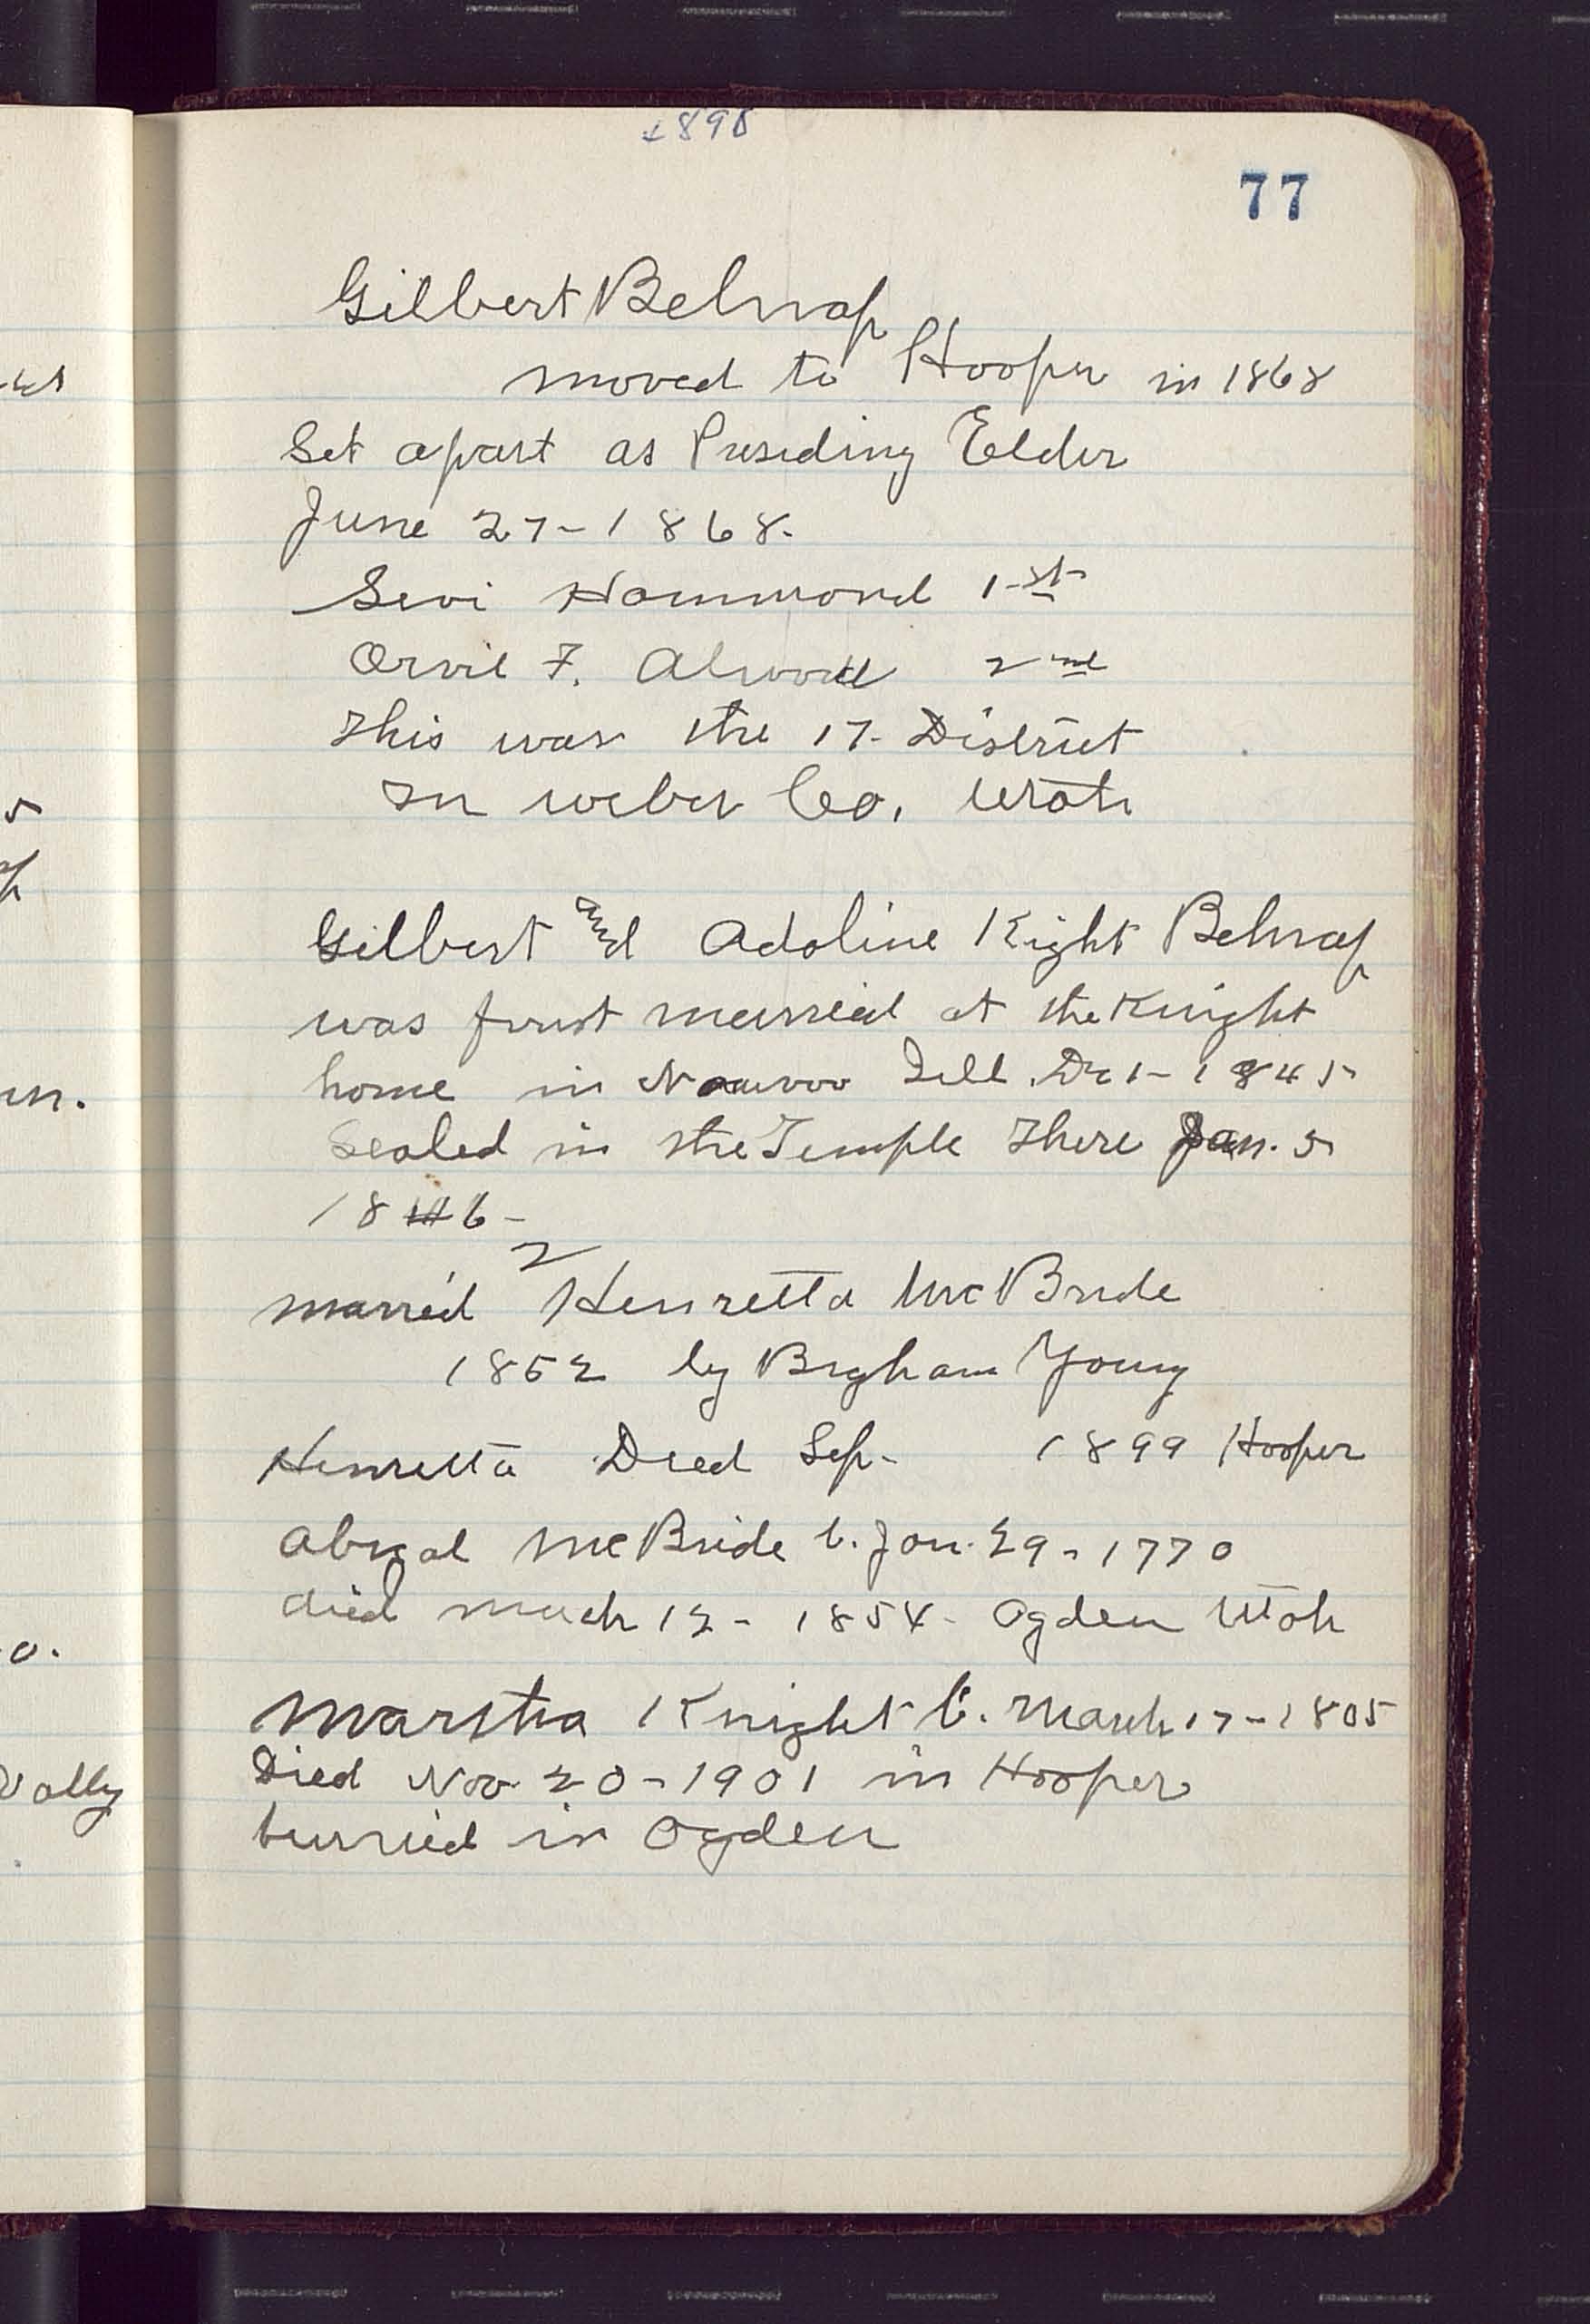 1898
77
Gilbert Belnap
moved to Hooper in 1868
Set apart as Presiding Elder
June 27-1868.
Levi Hammond 1-st
Orvil F. Atwood 2nd
This was the 17- District
In weber Co, Utah
Gilbert and Adoline Kight Belnap
was furst married at the Knight
home in Nauvoo Ill. De 1-1845
Sealed in the Temple there Jan. 5
1846-
2
married Henretta McBride
1852 by Brgham Young
Henretta Died Sep- 1899 Hooper
Abigal McBride b. Jan. 29-1770
died March 12-1854- Ogden Utah
Martha Knight b. March 17-1805
Died Nov. 20-1901 in Hooper
burried in Ogden
5
un.
o.
Vally